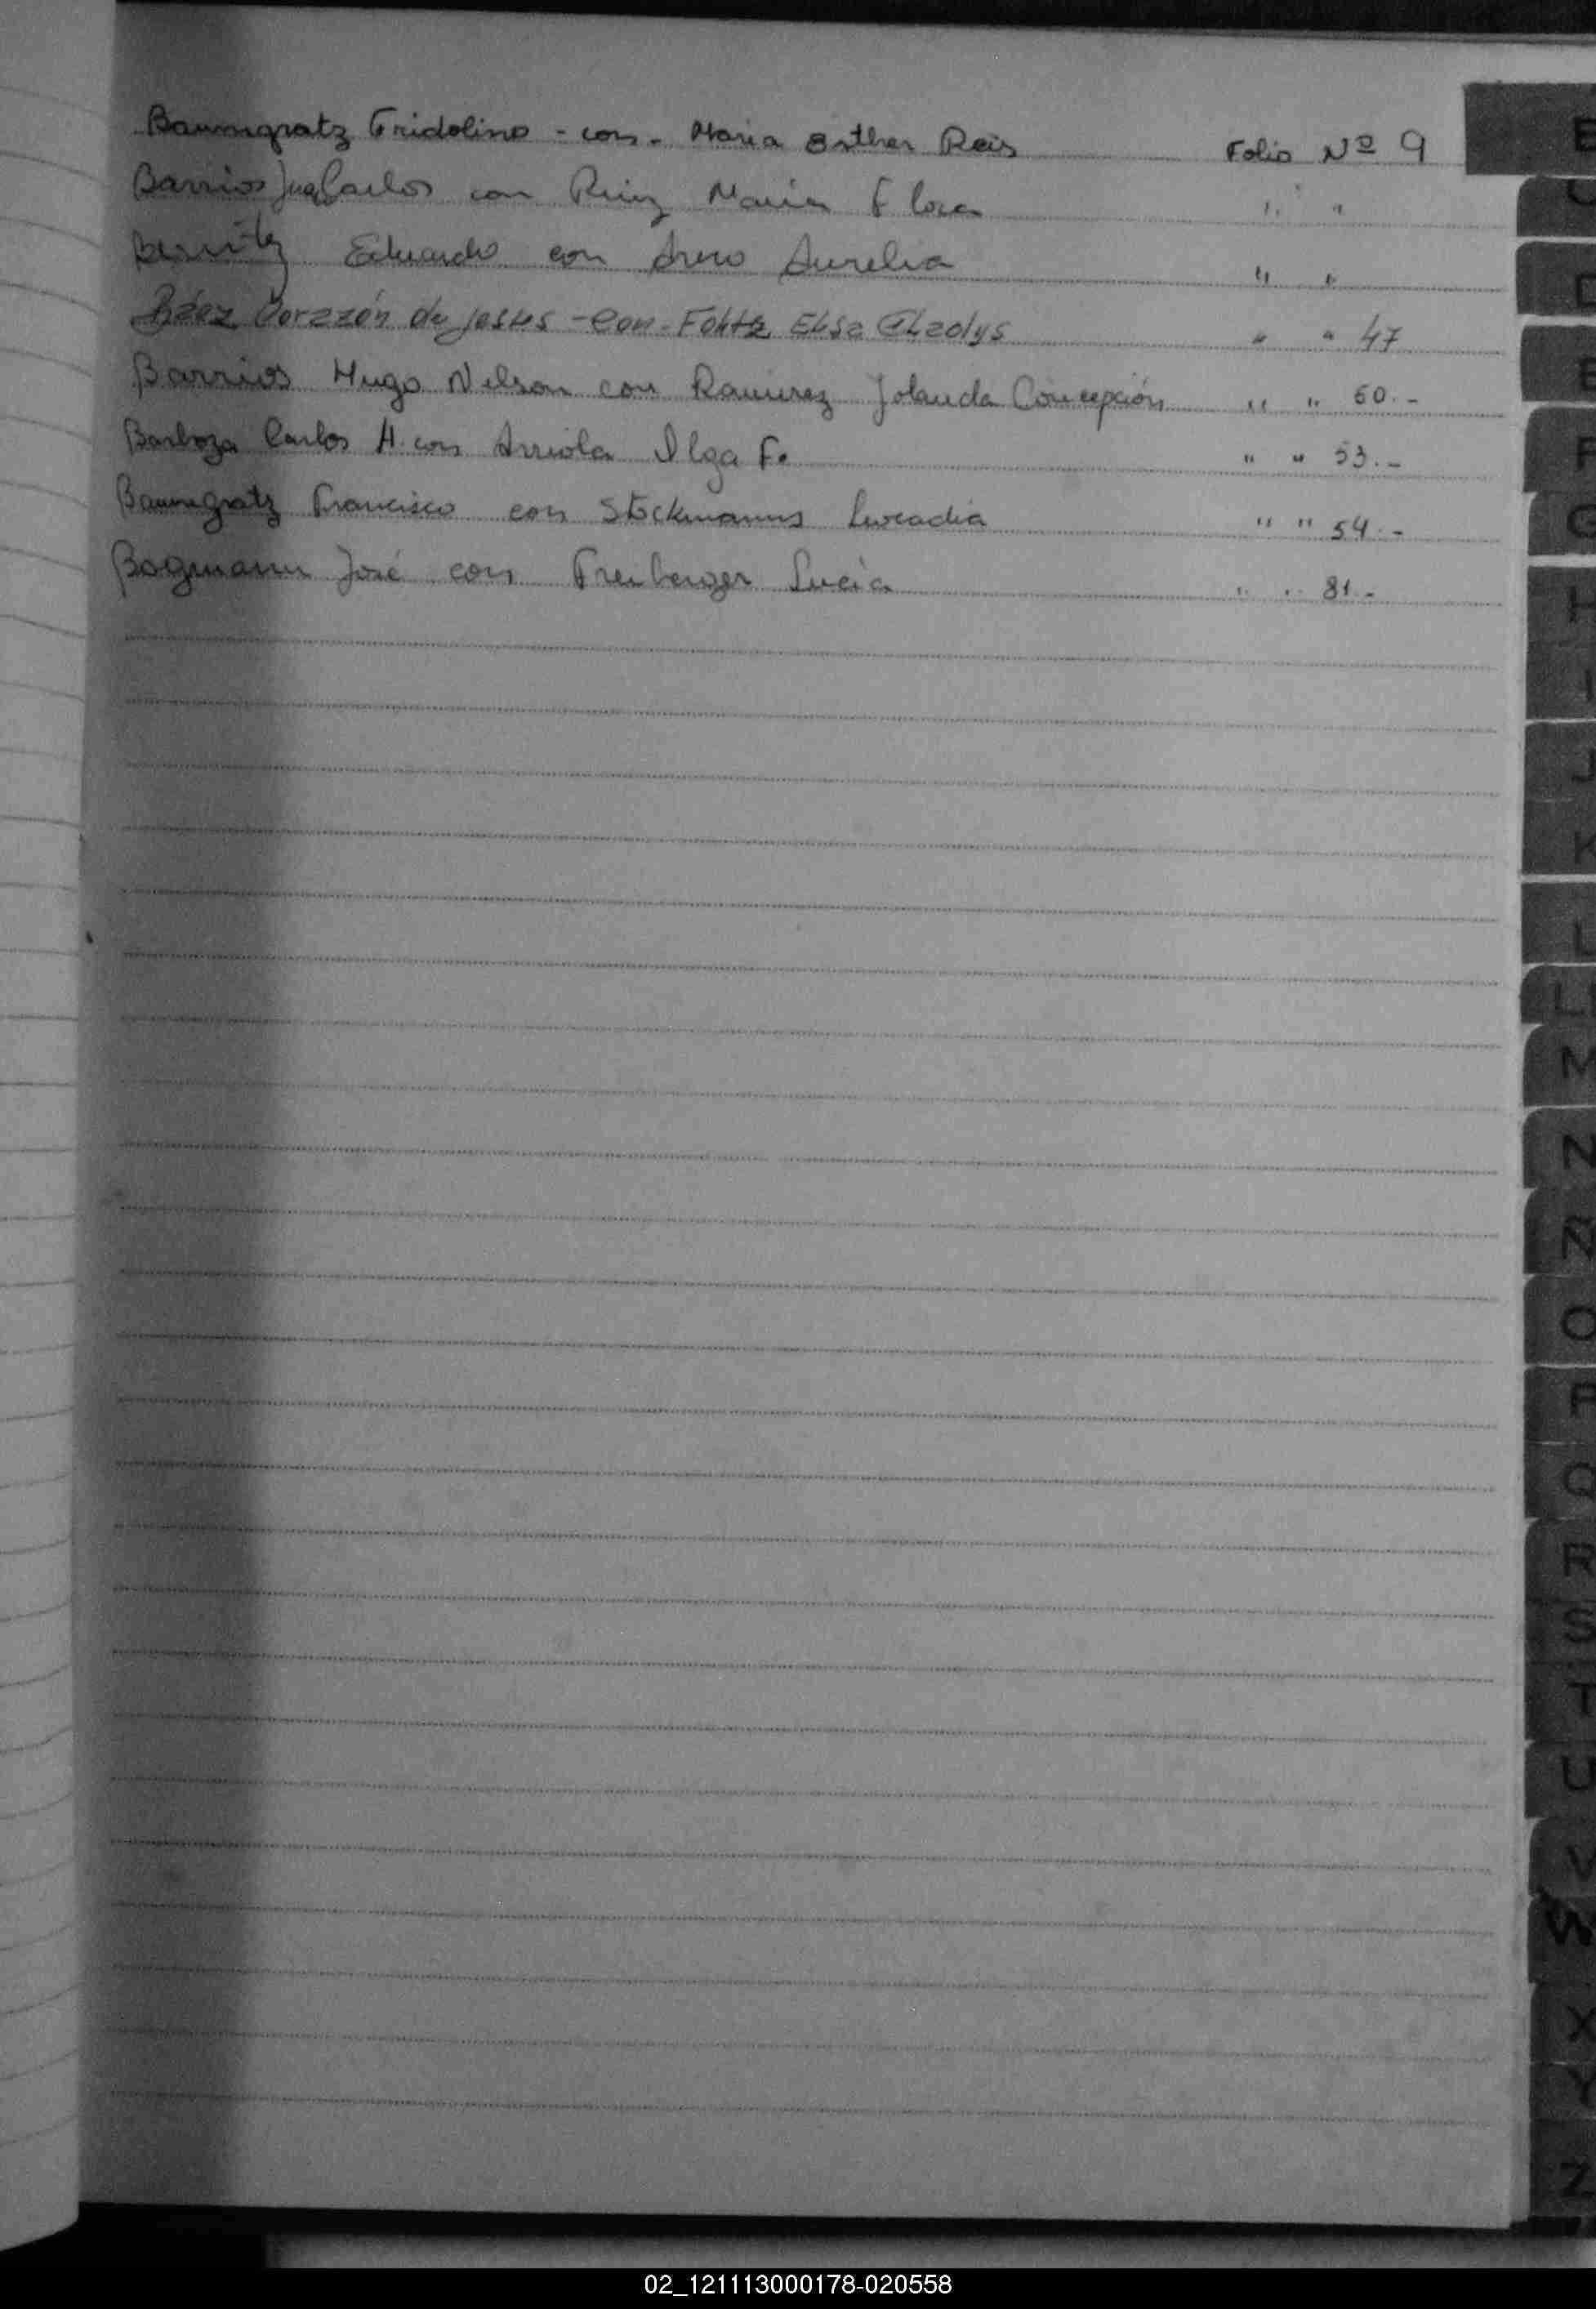 Baumgratz Fridolino - con - Maria Esther Reis Folio Nº 9
Barrios Juan Carlos con Ruiz Maria Flora " "
Benitez Eduardo con Aurelia " "
Báez Corazón de Jesus - Con - Fohtz Elsa Gladlys " " 47
Barrios Hugo Nelson con Ramirez Jolanda Concepción " " 50.-
Barboza Carlos H. con Arriola Ilga F. " " 53.-
Baumgratz Francisco con Stockmanns Leocadia " " 54.-
Bogmann José con Freiberger Lucia " " 81.-
B
C
D
E
F
G
H
I
J
K
L
LL
M
N
Ñ
O
P
Q
R
S
T
U
V
W
X
Y
Z
02_121113000178-020558